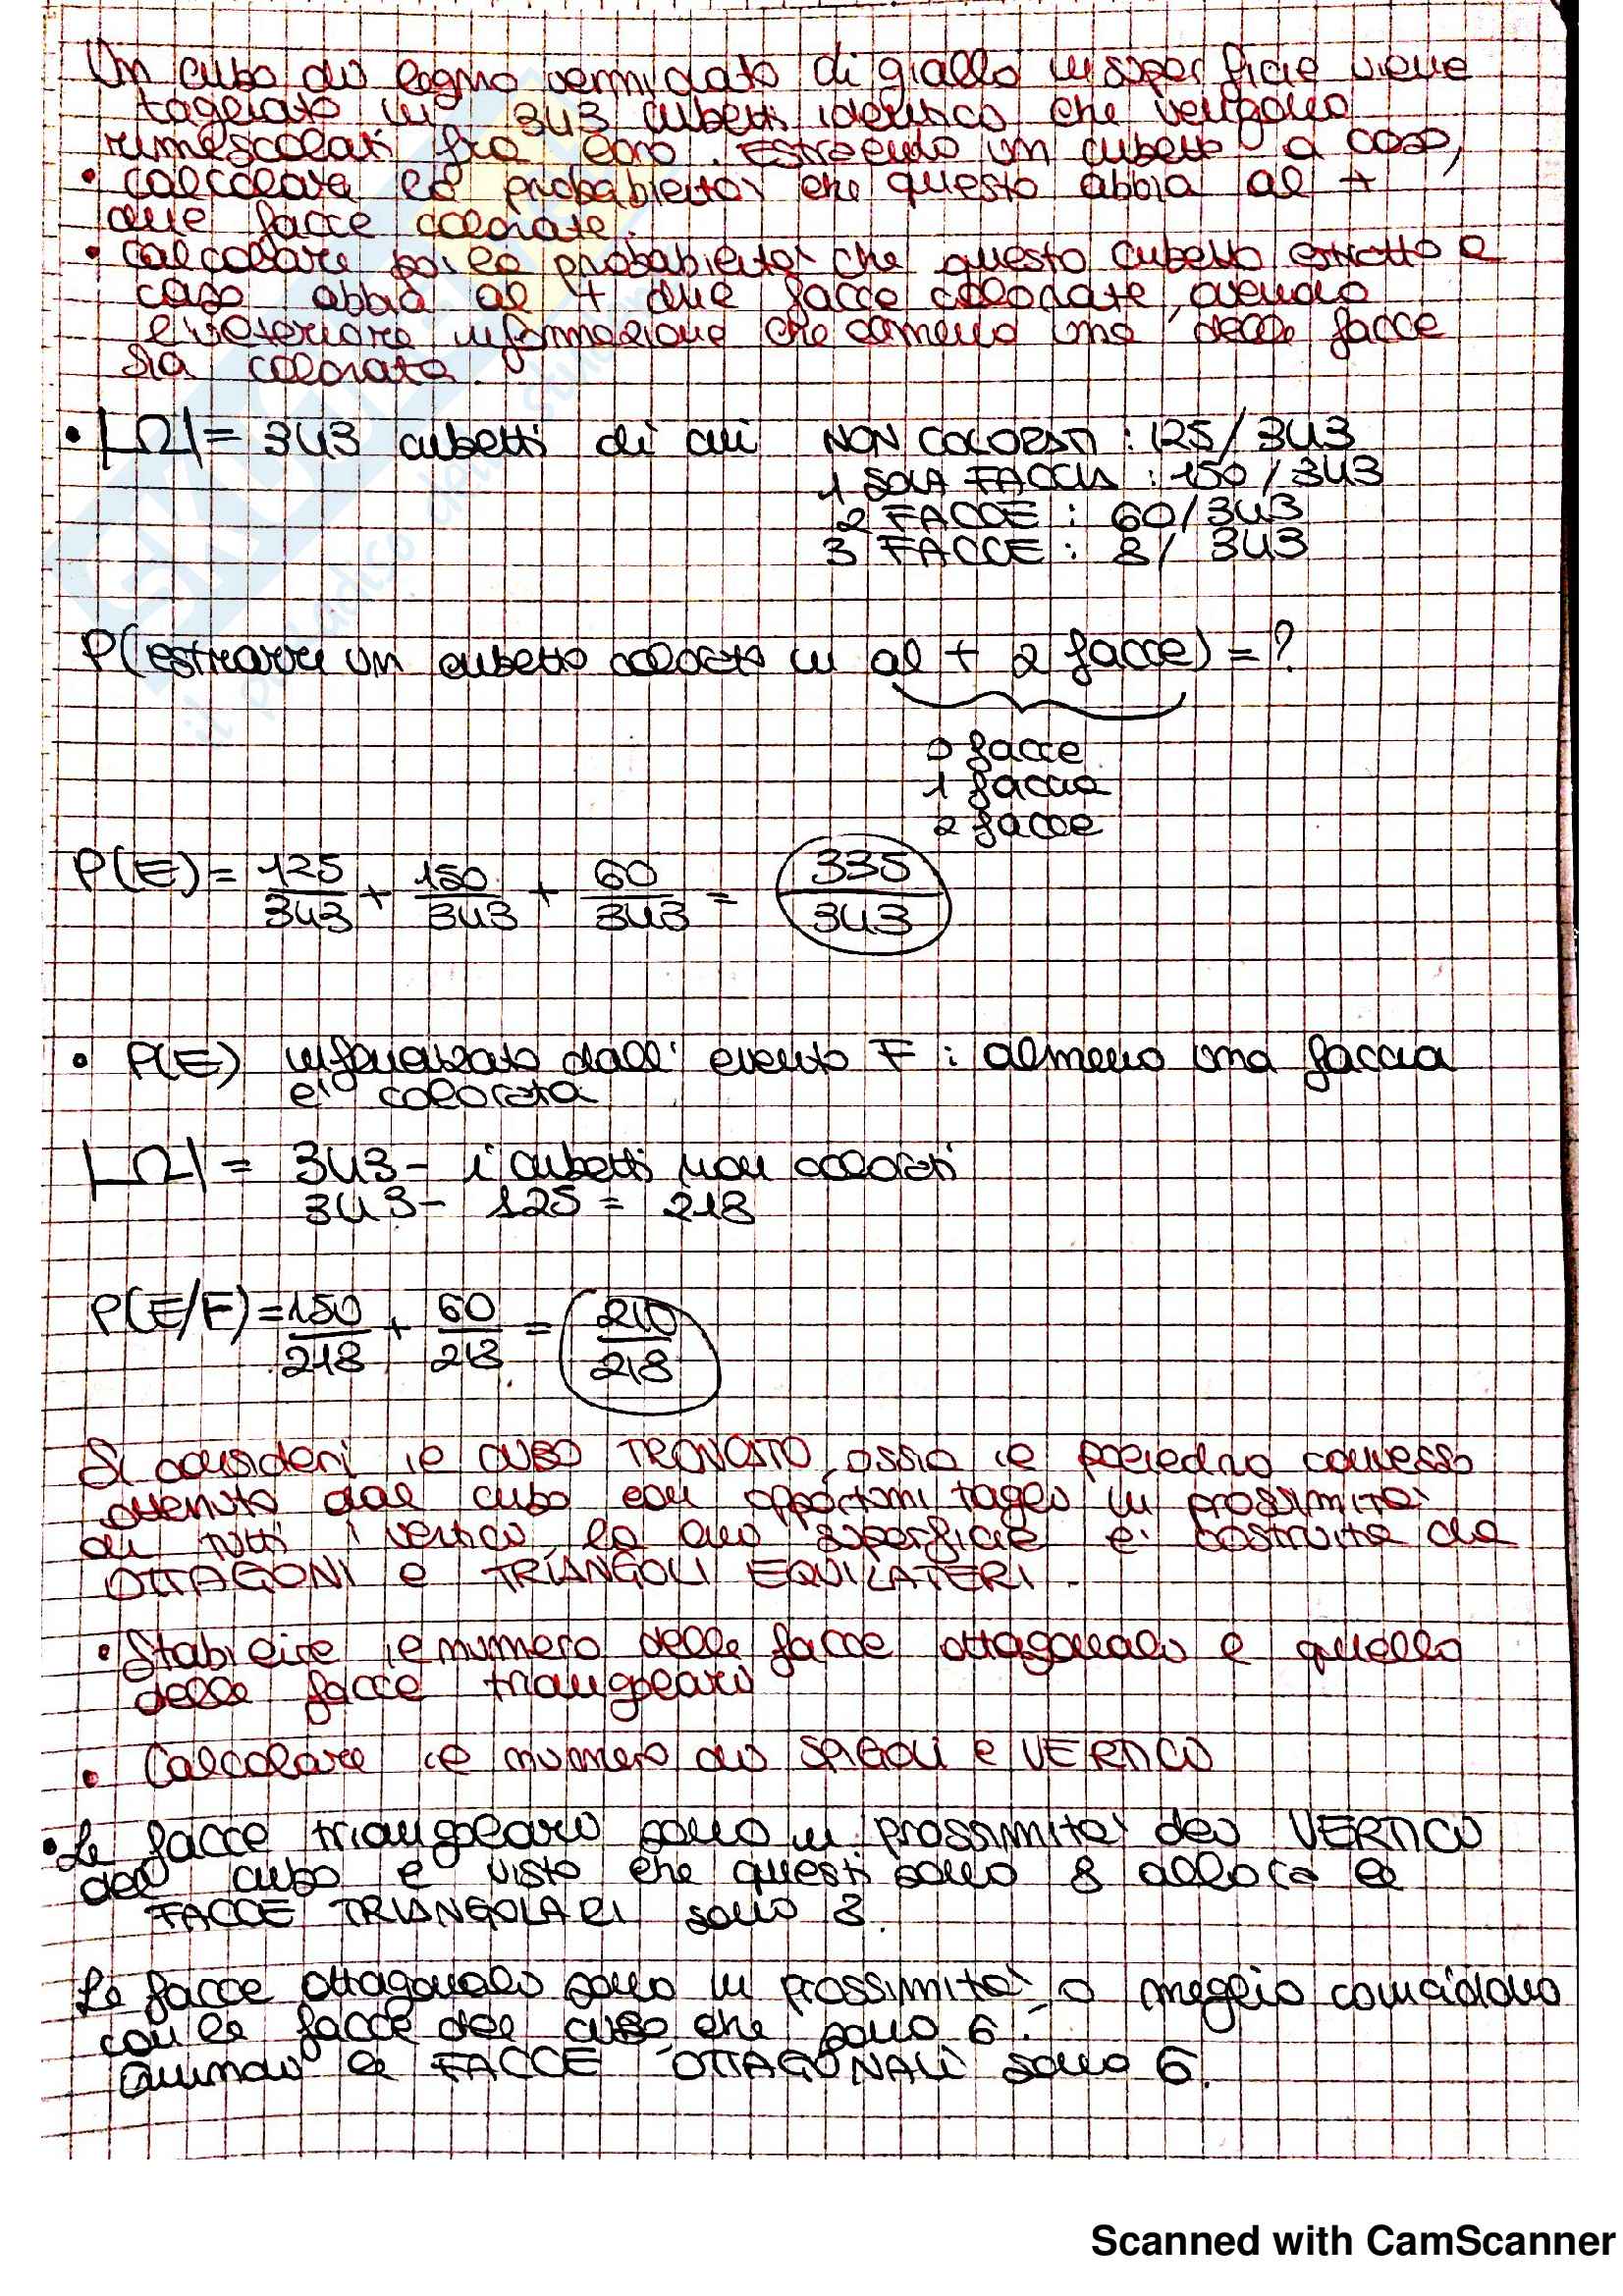 Un cubo di legno verniciato di giallo in superficie viene
tagliato in 343 cubetti identici che vengono
rimescolati fra loro. Estraendo un cubetto a caso,
• calcolare la probabilità che questo abbia al +
due facce colorate.
• calcolare poi la probabilità che questo cubetto estratto a
caso abbia al + due facce colorate, avendo
l'ulteriore informazione che almeno una delle facce
sia colorata.
• |Ω| = 343 cubetti di cui NON COLORATI : 125/343
1 SOLA FACCIA : 150/343
2 FACCE : 60/343
3 FACCE : 8/343
P(estrarre un cubetto colorato in al + 2 facce) = ?
0 facce
1 faccia
2 facce
P(E) = 125/343 + 150/343 + 60/343 = 335/343
• P(E) influenzato dall' evento F : almeno una faccia
è colorata
|Ω| = 343 - i cubetti non colorati
343 - 125 = 218
P(E/F) = 150/218 + 60/218 = 210/218
Si consideri il CUBO TRONCATO, ossia il poliedro convesso
ottenuto dal cubo con opportuni tagli in prossimità
di tutti i vertici, la cui superficie è costruita da
OTTAGONI e TRIANGOLI EQUILATERI.
• Stabilire il numero delle facce ottagonali e quello
delle facce triangolari
• Calcolare il numero di SPIGOLI e VERTICI
• Le facce triangolari sono in prossimità dei VERTICI
del cubo e visto che questi sono 8 allora le
FACCE TRIANGOLARI sono 8.
Le facce ottagonali sono in prossimità, o meglio coincidono
con le facce del cubo, che sono 6.
Quindi le FACCE OTTAGONALI sono 6.
Scanned with CamScanner